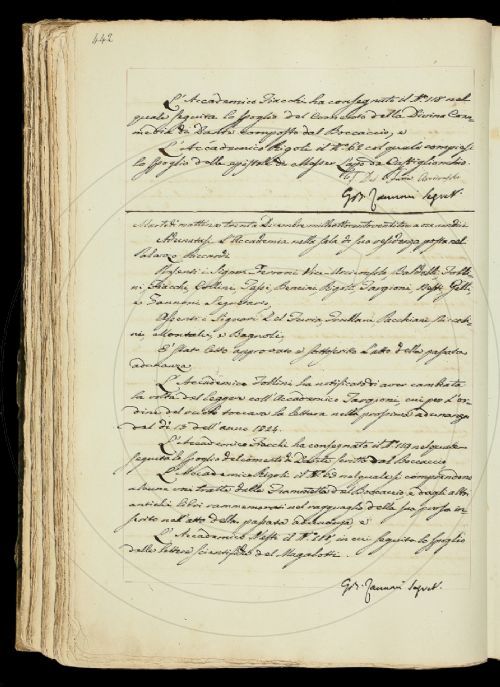 442
L'Accademico Fiacchi ha consegnato il N.° 118 nel
quale seguita lo spoglio del Comento della Divina Com-
media di Dante composto dal Boccaccio, e
L'Accademico Rigoli il N.° 62 col quale compie si
lo spoglio delle epistole di Messer Lapo da Castiglionchio.
Gio. Zannoni Segret.°
Martedì mattina trenta Dicembre milleottocentoventitre a ore undici
Adunatasi l'Accademia nella sala di sua residenza posta nel
Palazzo Riccardi
Presenti i Signori Ferroni Vice-Arciconsolo, Baldelli, Follini,
Fiacchi, Collini, Sarchiani, Bencini, Rigoli, Targioni, Nesti,
e Zannoni Segretario,
Assenti i Signori Del Furia, Frullani, Pacchiani, Niccolini,
Montalvi, e Bagnoli,
È stato letto approvato e sottoscritto l'atto della passata
adunanza.
L'Accademico Follini ha notificato di aver cambiata
la volta del leggere coll'Accademico Targioni, cui per l'or-
dine del ruolo toccava la lettura nella prossima adunanza
del dì 13 dell'anno 1824.
L'Accademico Fiacchi ha consegnato il N.° 119 nel quale
seguita lo spoglio del comento di Dante scritto dal Boccaccio
L'Accademico Rigoli il N.° 63 nel quale si comprendono
alcune voci tratte dalla Fiammetta del Boccaccio, e dagli altri
antichi libri rammemorati nel ragguaglio della sua giunta in-
serito nell'atto della passata adunanza, e
L'Accademico Nesti il N.° 118 in cui seguita lo spoglio
delle lettere scientifiche del Magalotti.
Gio. Zannoni Segret.°